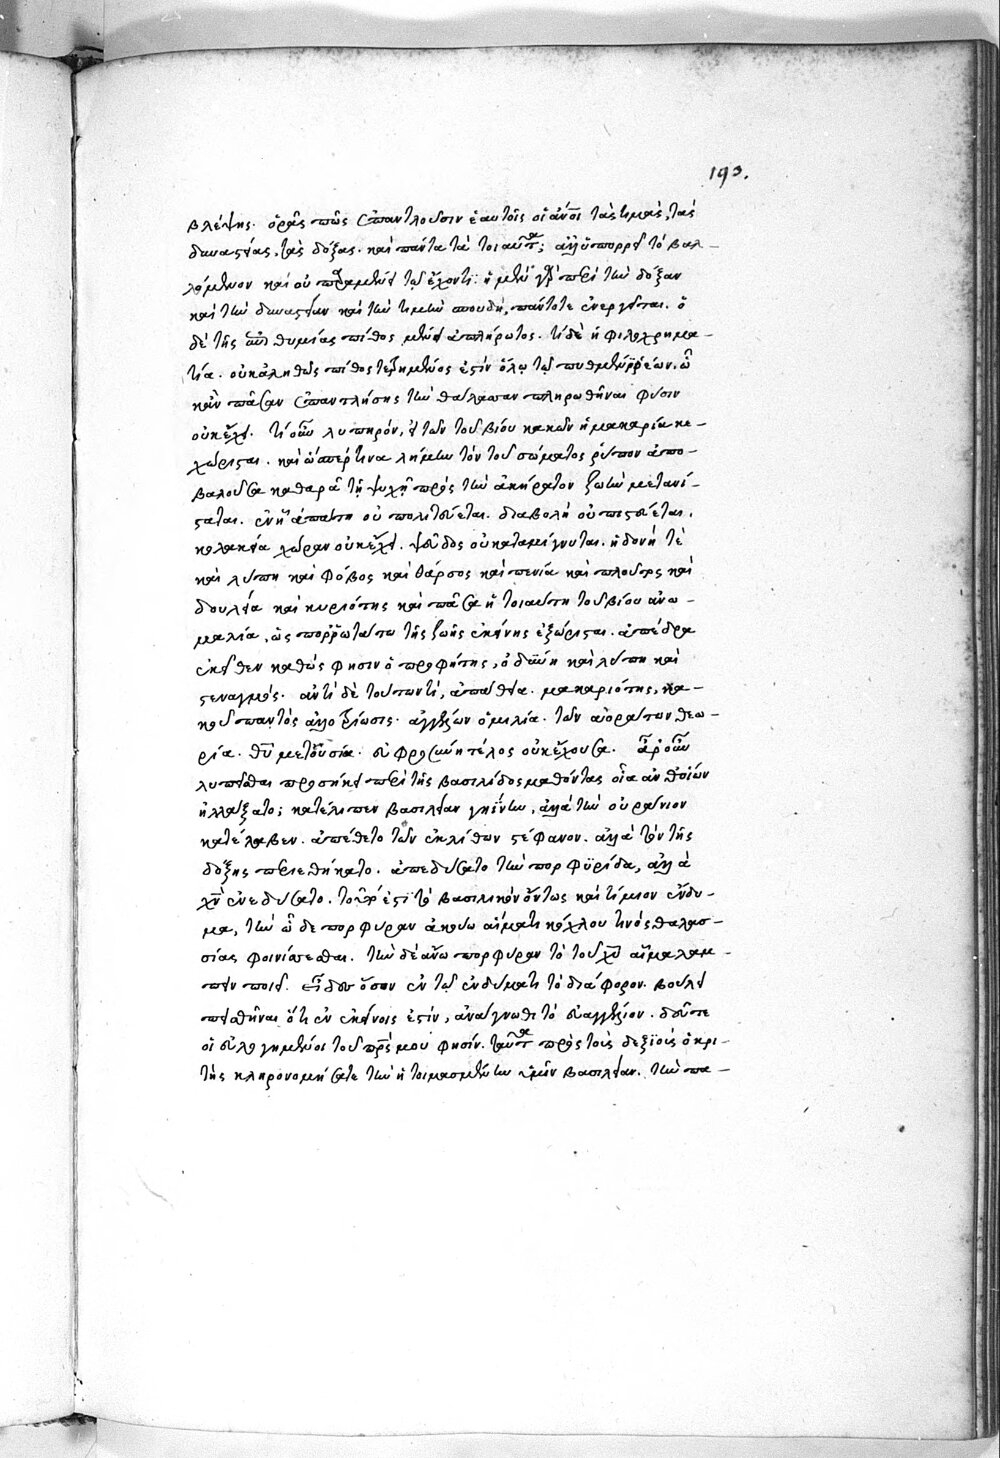 193.
βλέψης. ὁρᾶς πῶς ἐπαντλοῦσιν ἑαυτοῖς οἱ ἄνοι τὰς τιμὰς, τὰς
δυναστείας, τὰς δόξας. καὶ πάντα τὰ τοιαῦτα; ἀλλ' ὑπορρεῖ τὸ βαλ-
λόμενον καὶ οὐ παραμένει τῷ ἔχοντι. ἡ μὲν γὰρ περὶ τὴν δόξαν
καὶ τὴν δυναστείαν καὶ τὴν τιμὴν σπουδὴ, πάντοτε ἐνεργεῖται. ὁ
δὲ τῆς ἐπιθυμίας πίθος μένει ἀπλήρωτος. τί δὲ ἡ φιλοχρημα-
τία. οὐκ ἀληθῶς πίθος τετρημένος ἐστὶν ὅλῳ τῷ πυθμένι ῥέων. ᾧ
κἂν πᾶσαν ἐπαντλήσῃς τὴν θάλασσαν πληρωθῆναι φύσιν
οὐκ ἔχει. τί οὖν λυπηρὸν, εἰ τῶν τοῦ βίου κακῶν ἡ μακαρία κε-
χώρισται. καὶ ὥσπερ τινα λήμην τὸν τοῦ σώματος ῥύπον ἀπο-
βαλοῦσα καθαρᾷ τῇ ψυχῇ πρὸς τὴν ἀκήρατον ζωὴν μετανί-
σταται. ἐν ᾗ ἀπάτη οὐ πολιτεύεται. διαβολὴ οὐ πιστεύεται.
κολακεία χώραν οὐκ ἔχει. ψεῦδος οὐ καταμίγνυται. ἡδονή τὲ
καὶ λύπη καὶ φόβος καὶ θάρσος καὶ πενία καὶ πλοῦτος καὶ
δουλεία καὶ κυριότης καὶ πᾶσα ἡ τοιαύτη τοῦ βίου ἀνω-
μαλία, ὡς πορρωτάτω τῆς ζωῆς ἐκείνης ἐξώρισται. ἀπέδρα
ἐκεῖθεν καθώς φησιν ὁ προφήτης, ὀδύνη καὶ λύπη καὶ
στεναγμός. ἀντὶ δὲ τούτων τί, ἀπάθεια. μακαριότης, κα-
κοῦ παντὸς ἀλλοτρίωσις. ἀγγέλων ὁμιλία. τῶν ἀοράτων θεω-
ρία. θῦ μετουσία. εὐφροσύνη τέλος οὐκ ἔχουσα. ἆρ' οὖν
λυπεῖσθαι προσήκει περὶ τῆς βασιλίδος μαθόντας οἷα ἀνθ' οἵων
ἠλλάξατο; κατέλιπεν βασιλείαν γηΐνην, ἀλλὰ τὴν οὐράνιον
κατέλαβεν. ἀπέθετο τὸν ἐκ λίθων στέφανον. ἀλλὰ τὸν τῆς
δόξης περιεθήκατο. ἀπεδύσατο τὴν πορφυρίδα, ἀλλὰ
χν̄ ἐνεδύσατο. τοῦτό ἐστι τὸ βασιλικὸν ὄντως καὶ τίμιον ἔνδυ-
μα, τὴν ὧδε πορφύραν ἀκούω αἵματι κόχλου τινὸς θαλασ-
σίας φοινίσσεσθαι. τὴν δὲ ἄνω πορφύραν τὸ τοῦ χῦ αἷμα λαμ-
πειν ποιεῖ. εἶδες ὅσον ἐν τῷ ἐνδύματι τὸ διάφορον. βούλει
πεισθῆναι ὅτι ἐν ἐκείνοις ἐστὶν, ἀνάγνωθι τὸ εὐαγγέλιον. δεῦτε
οἱ εὐλογημένοι τοῦ πρς μου φησίν. ταῦτα πρὸς τοὺς δεξιοὺς ὁ κρι-
τής κληρονομήσατε τὴν ἡτοιμασμένην ὑμῖν βασιλείαν. τὴν πα-